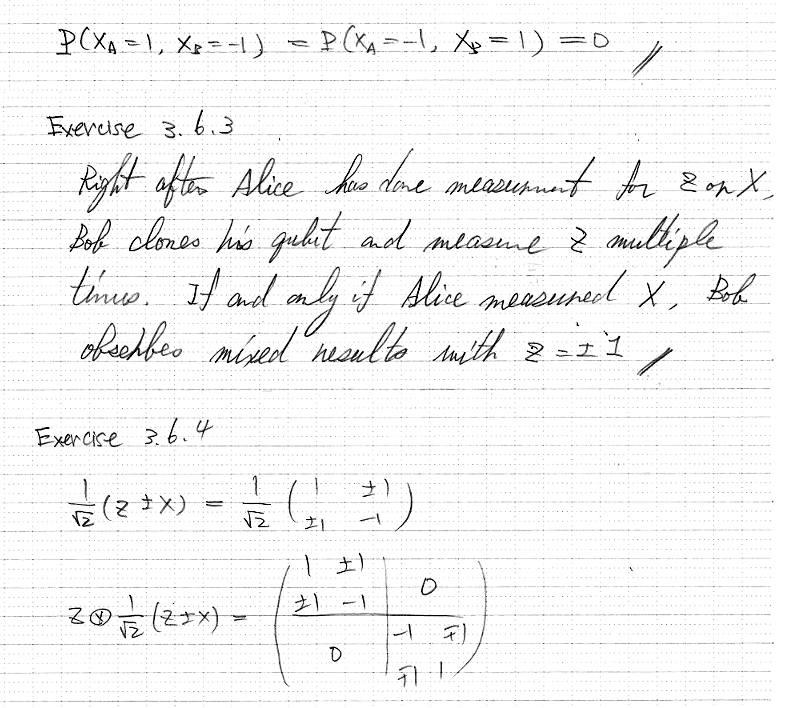 P(X_A=1, X_B=-1) = P(X_A=-1, X_B=1) = 0 //
Exercise 3.6.3
Right after Alice has done measurment for Z or X,
Bob clones his qubit and measure Z multiple
times. If and only if Alice measured X, Bob
obsehbes mixed results with Z = ±1 //
Exercise 3.6.4
1/√2 (Z ± X) = 1/√2 ( 1 ±1
±1 -1 )
Z ⊗ 1/√2 (Z ± X) = ( 1 ±1 | 0
±1 -1
0 | -1 ∓1
∓1 1 )